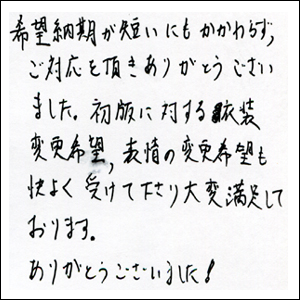 希望納期が短いにもかかわらず,
ご対応を頂きありがとうござい
ました。初版に対する衣装
変更希望,表情の変更希望も
快よく受けて下さり大変満足して
おります。
ありがとうございました!